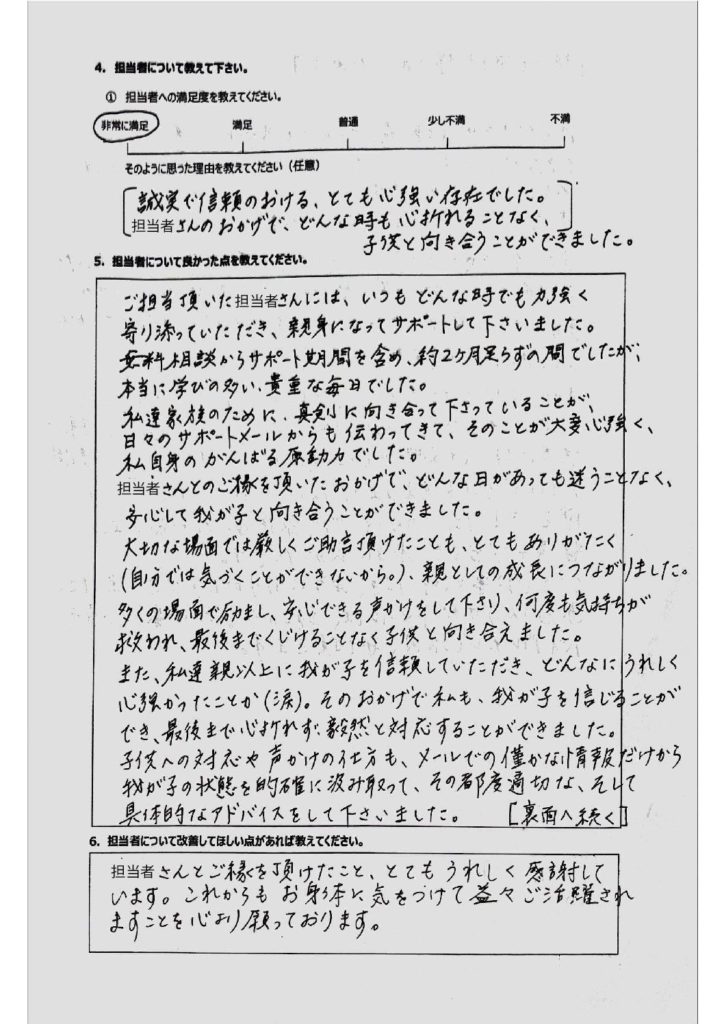 4. 担当者について教えて下さい。
① 担当者への満足度を教えてください。
非常に満足 満足 普通 少し不満 不満
そのように思った理由を教えてください（任意）
誠実で信頼のおける、とても心強い存在でした。
担当者さんのおかげで、どんな時も心折れることなく、
子供と向き合うことができました。
5. 担当者について良かった点を教えてください。
ご担当頂いた担当者さんには、いつもどんな時でも力強く
寄り添っていただき、親身になってサポートして下さいました。
無料相談からサポート期間を含め、約2ヶ月足らずの間でしたが、
本当に学びの多い、貴重な毎日でした。
私達家族のために、真剣に向き合って下さっていることが、
日々のサポートメールからも伝わってきて、そのことが大変心強く、
私自身のがんばる原動力でした。
担当者さんとのご縁を頂いたおかげで、どんな日があっても迷うことなく、
安心して我が子と向き合うことができました。
大切な場面では厳しくご助言頂けたことも、とてもありがたく
(自分では気づくことができないから。)、親としての成長につながりました。
多くの場面で励まし、安心できる声かけをして下さり、何度も気持ちが
救われ、最後までくじけることなく子供と向き合えました。
また、私達親以上に我が子を信頼していただき、どんなにうれしく
心強かったことか(涙)。そのおかげで私も、我が子を信じることが
でき、最後まで心折れず、毅然と対応することができました。
子供への対応や声かけの仕方も、メールでの僅かな情報だけから
我が子の状態を的確に汲み取って、その都度適切な、そして
具体的なアドバイスをして下さいました。 [裏面へ続く]
6. 担当者について改善してほしい点があれば教えてください。
担当者さんとご縁を頂けたこと、とてもうれしく感謝して
います。これからもお身体に気をつけて益々ご活躍され
ますことを心より願っております。